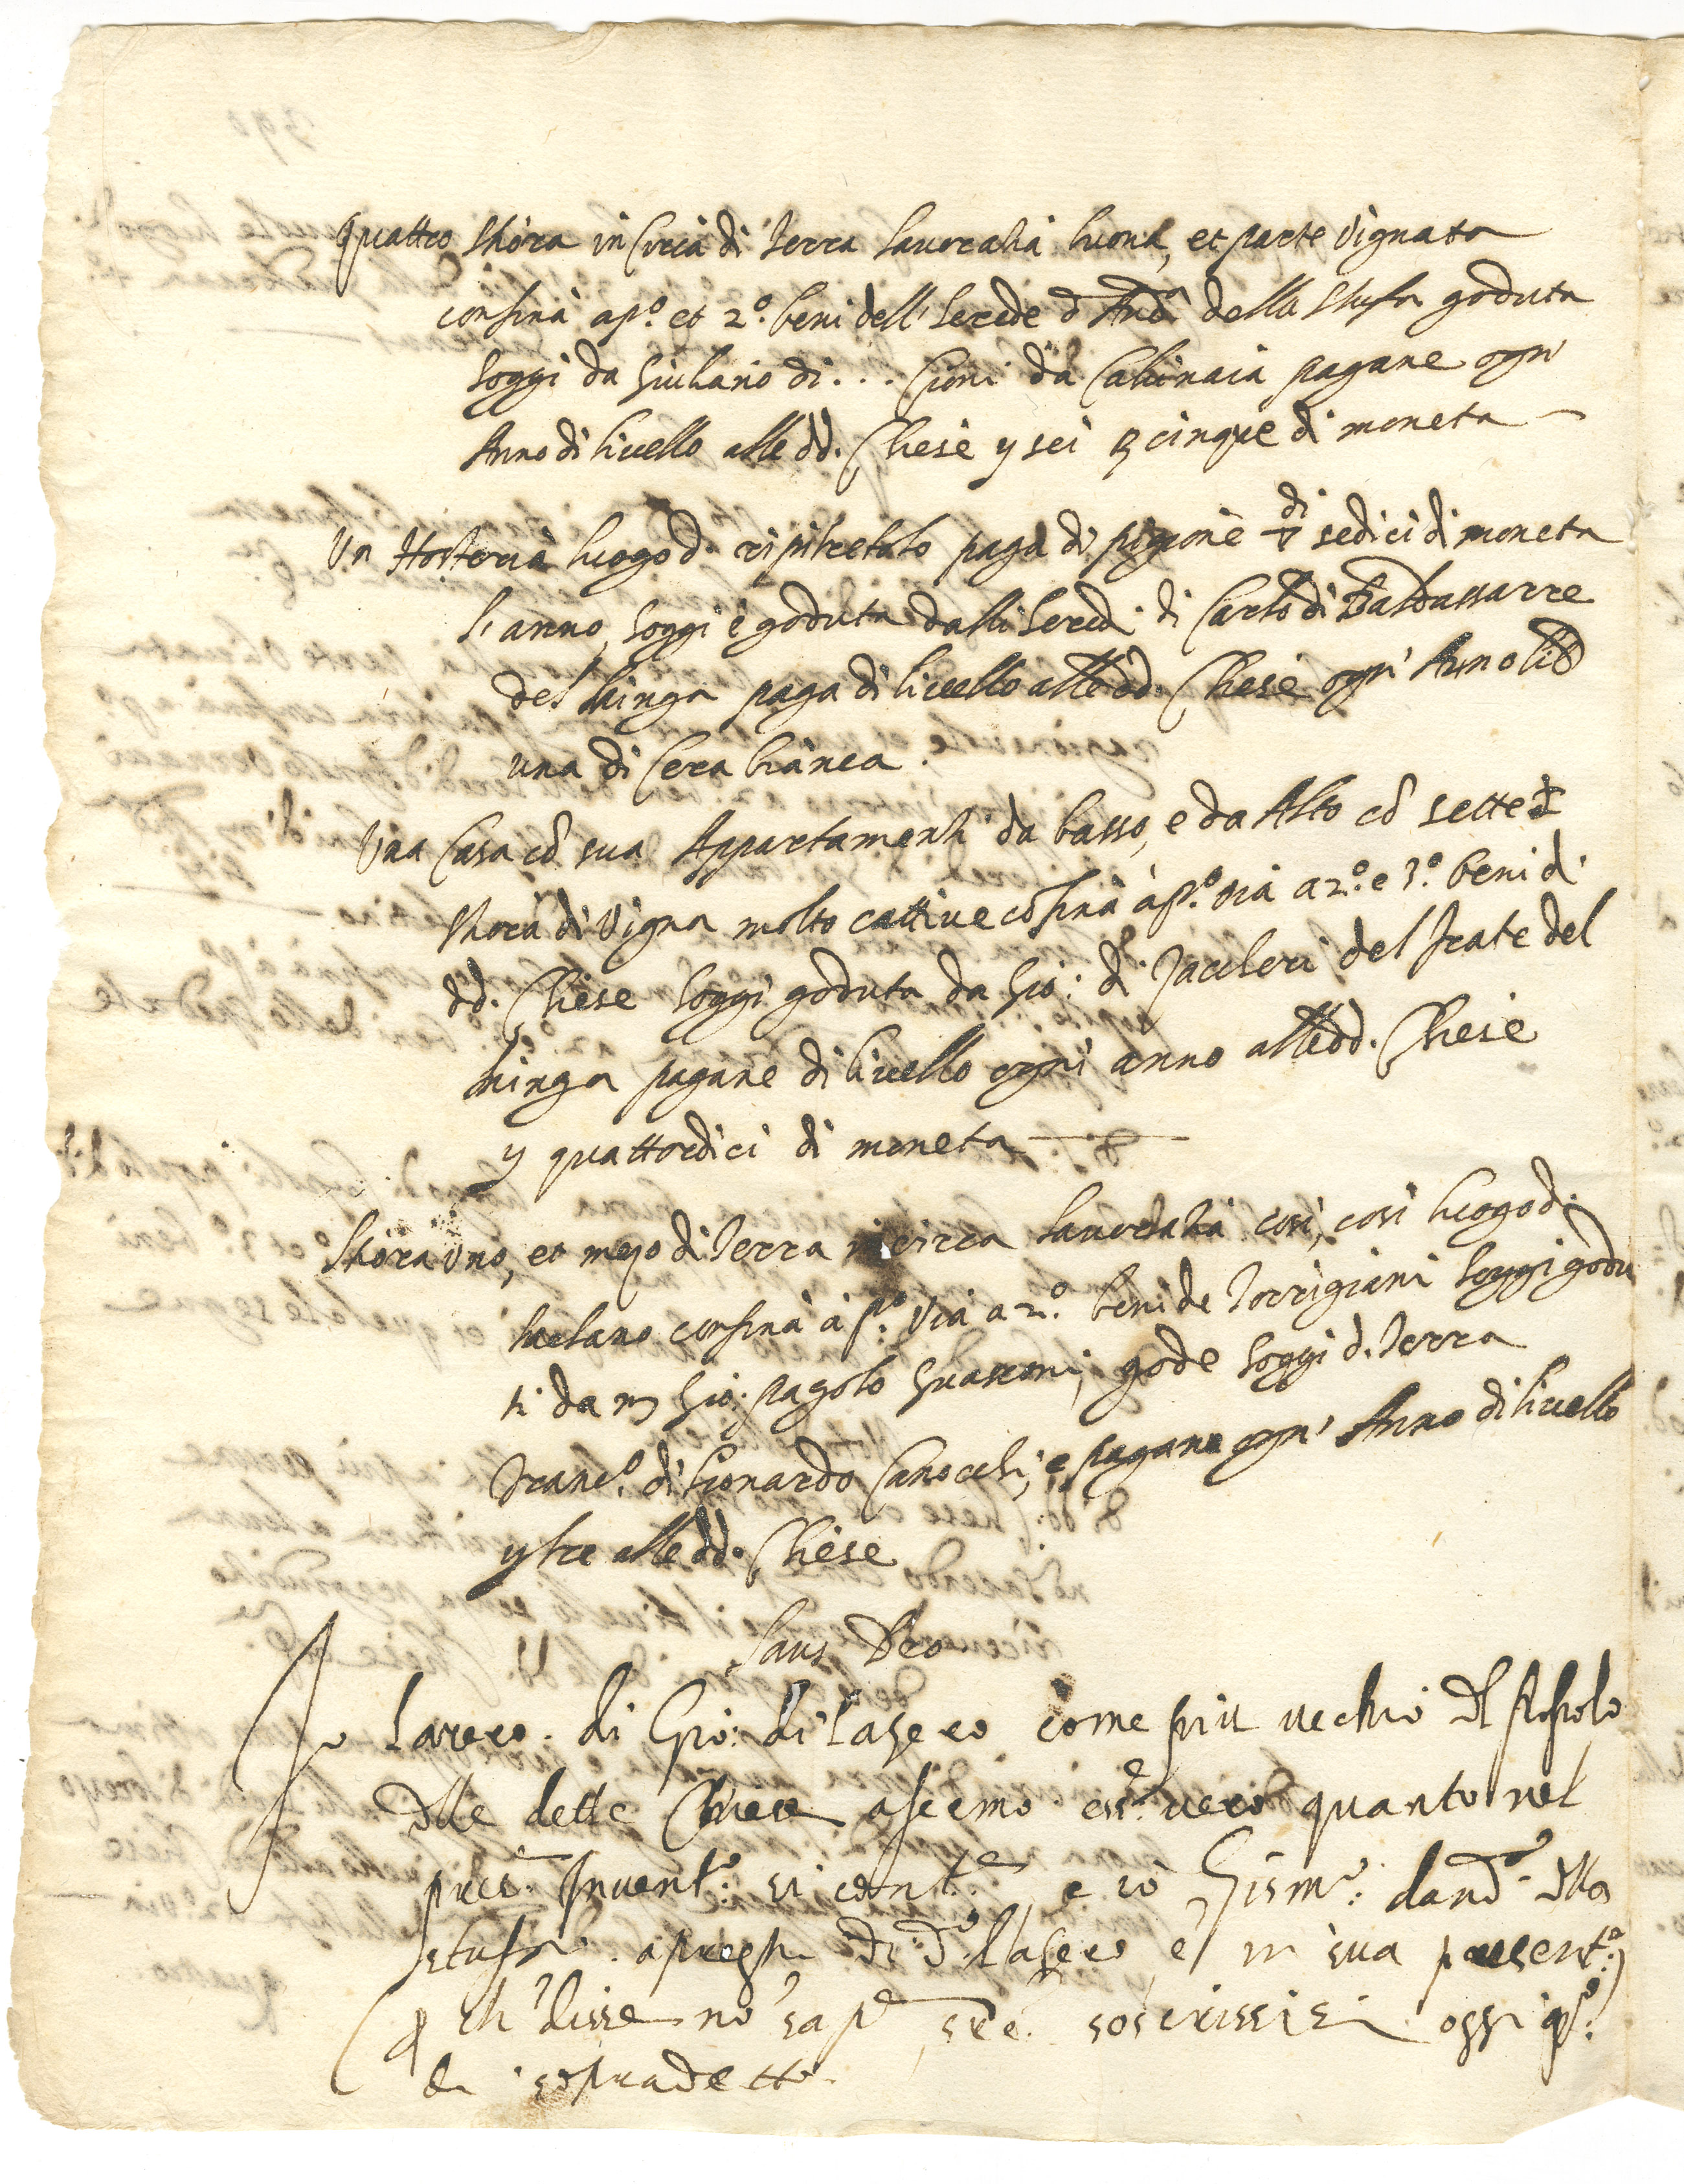 Quattro stiora in circa di terra lavoratia buona, et parte vignata
confina a p.o et 2.o beni dell'herede d And.a della Stufa goduta
hoggi da Giuliano di... Cioni da Calcinaia pagane ogn'
Anno di livello alle dd. Chiese y sei cinque di moneta
Un Hosteria luogo d. paga di pigione di sedici di moneta
l'anno, hoggi è goduta dalli heredi di Carlo di Baldassarre
del paga di livello alle dd. Chiese ogn' Anno lib
una di Cera bianca.
Una Casa cō sua Appartamenti da basso, e da Alto cō sette
stiora di vigna molto cattive cōfina à p.o via a 2.o e 3.o beni di
dd. Chiese hoggi goduta da Gio: di del frate del
pagane di livello ogni anno alle dd. Chiese
y quattordici di moneta
Stiora uno, et mezo di terra in circa lavoratia così, così luogo d.
confina à p.o via a 2.o beni de Torrigiani hoggi godu
ti da m Gio: pagolo Guasconi, gode hoggi d. terra
Franc.o di Lionardo e pagane ogn' Anno di livello
y tre alle dd. Chiese
Laus Deo
Io Lazero di Gio: di Lazero come piu vechio dl Popolo
dlle dette Chiese afermo ess.e vero quanto nel
pres.e Invent.o si cont.e e io Gism.o dand.a dlla
stufa a pregh. di d.o Lazero e in sua present.a
ch' disse nō sap.e scr.e soscrissi oggi q.o
di sopradetto